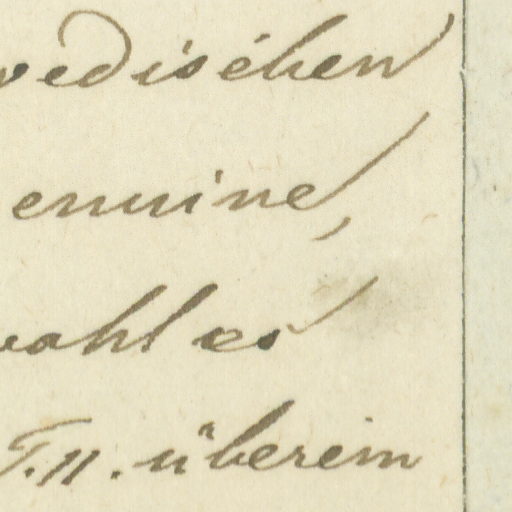 vedischen
enuine,
wahl es
T. 11. überein